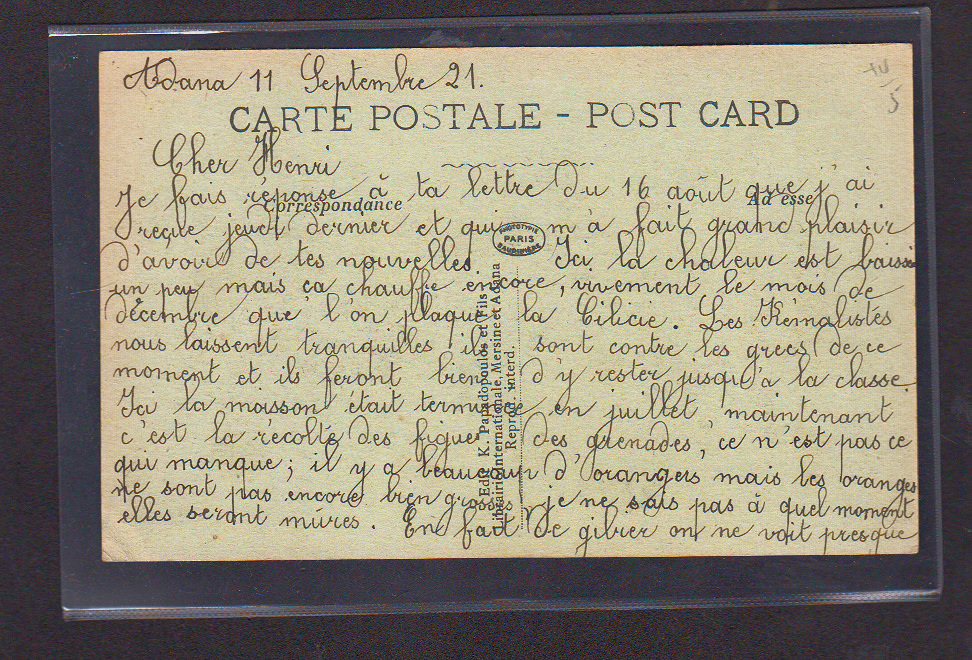 Adana 11 Septembre 21.
CARTE POSTALE - POST CARD
Cher Henri
Je fais réponse à ta lettre du 16 août que j'ai
Correspondance
reçue jeudi dernier et qui m'à fait grand plaisir
d'avoir de tes nouvelles Ici la chaleur est baissé
un peu mais ca chauffe encore, vivement le mois de
décembre que l'on plaque la Cilicie. Les Kémalistes
nous laissent tranquilles ils sont contre les grecs de ce
moment et ils feront bien d'y rester jusqu'a la classe.
Ici la moisson était terminée en juillet maintenant
c'est la récolte des figues des grenades, ce n'est pas ce
qui manque; il y a beaucoup d'orangers mais les oranges
ne sont pas encore bien grosses je ne sais pas à quel moment
elles seront mûres. En fait de gibier on ne voit presque
PHOTOTYPIE
PARIS
BAUDINIÈRE
Edit. K. Papadopoulos et Fils
Librairie Internationale, Mersine et Adana
Reprod. interd.